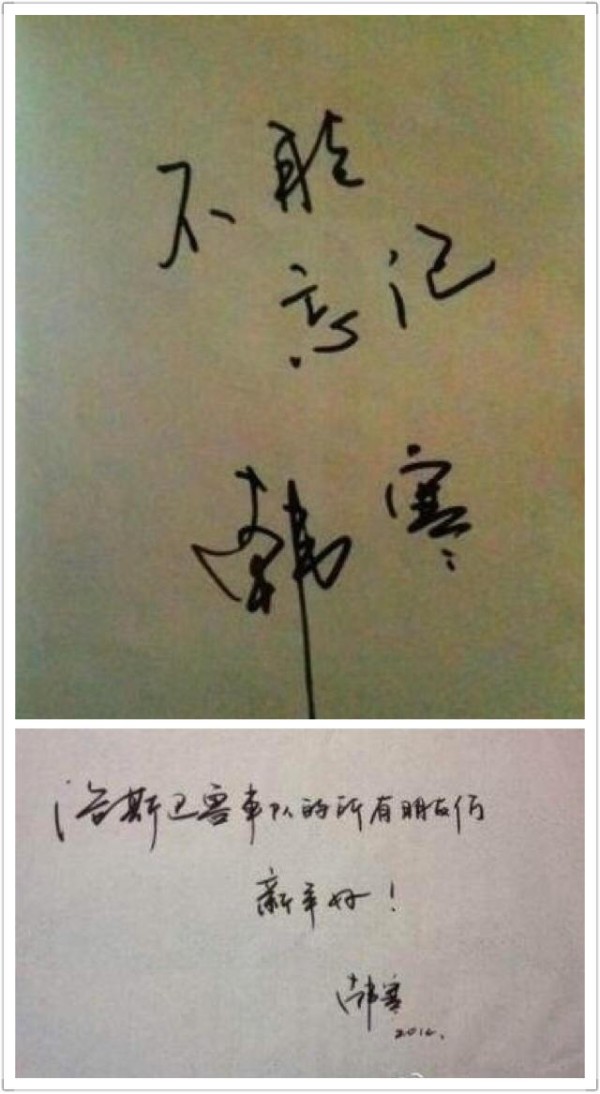 不能
忘记
韩寒
洛斯巴客车队的所有朋友们
新年好！
韩寒
2012.